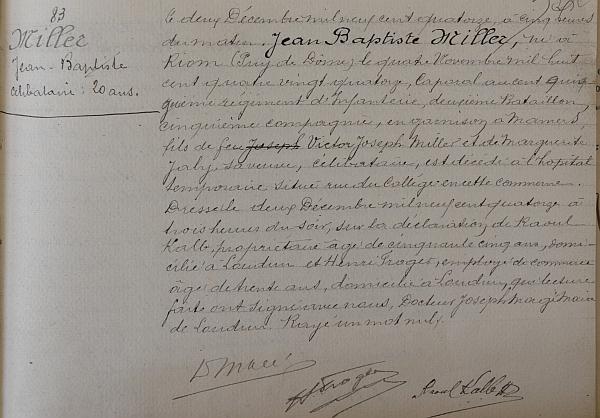 83
Miller
Jean-Baptiste
célibataire : 20 ans.
Le deux Décembre mil neuf cent quatorze, à cinq heures
du matin. Jean Baptiste Miller, né à
Riom (Puy de Dôme) le quatre Novembre mil huit
cent quatre vingt quatorze, Caporal au cent quin
zième régiment d'Infanterie, deuxième Bataillon,
cinquième compagnie, en garnison à Mamers,
fils de feu Joseph Victor Joseph Miller et de Marguerite
Jaly, sa veuve, célibataire, est décédé à l'hôpital
temporaire situé rue du Collège en cette commune.
Dressé le deux Décembre mil neuf cent quatorze à
trois heures du soir, sur la déclaration de Raoul
Kalb, propriétaire âgé de cinquante cinq ans, domi-
cilié à Loudun et Henri Froger, employé de commerce
âgé de trente ans, domicilié à Loudun, qui lecture
faite ont signé avec nous, Docteur Joseph Marc Maire
de Loudun. Rayé un mot nul.
H Froger
Raoul Kalb